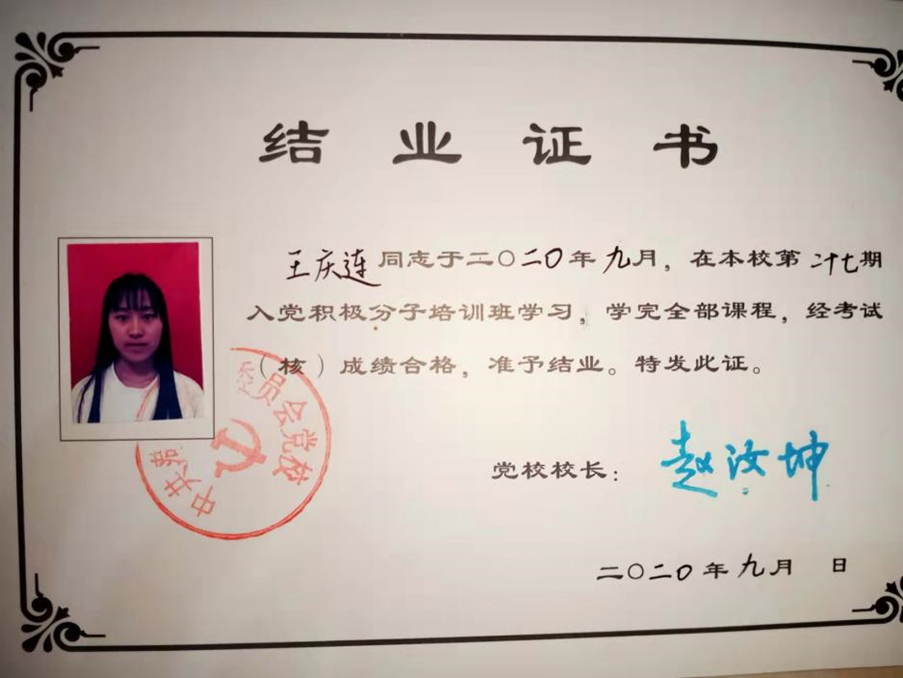 结业证书
王庆连同志于二〇二〇年九月，在本校第二十七期
入党积极分子培训班学习，学完全部课程，经考试
（核）成绩合格，准予结业。特发此证。
中共 委员会党校
党校校长：赵汝坤
二〇二〇年九月 日